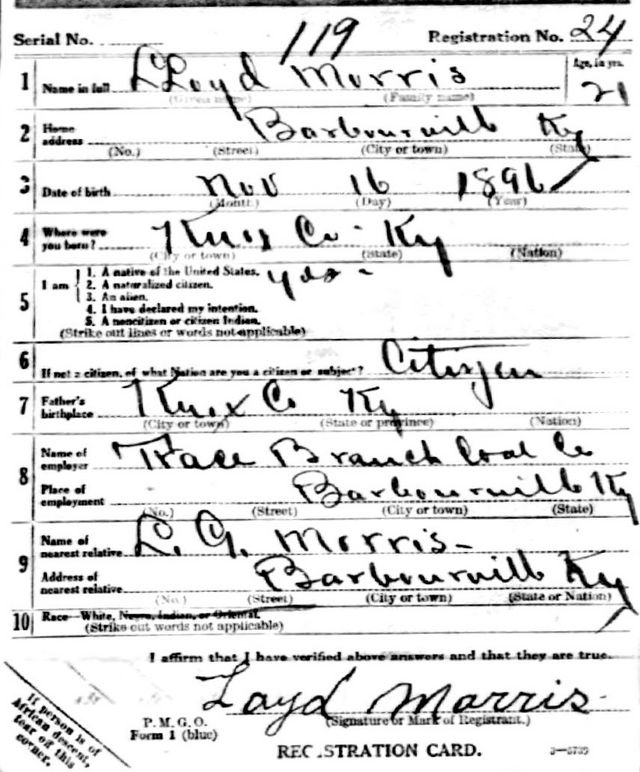 Serial No. 119 Registration No. 24
1 Name in full Lloyd Morris Age, in yrs. 21
(Given name) (Family name)
2 Home address Barbourvill Ky
(No.) (Street) (City or town) (State)
3 Date of birth Nov 16 1896
(Month) (Day) (Year)
4 Where were you born? Knox Co - Ky
(City or town) (State) (Nation)
5 I am 1. A native of the United States. yes -
2. A naturalized citizen.
3. An alien.
4. I have declared my intention.
5. A noncitizen or citizen Indian.
(Strike out lines or words not applicable)
6 If not a citizen, of what Nation are you a citizen or subject? Citizen
7 Father's birthplace Knox Co Ky
(City or town) (State or province) (Nation)
8 Name of employer Trace Branch Coal Co
Place of employment Barbourvill Ky
(No.) (Street) (City or town) (State)
9 Name of nearest relative L. G. Morris -
Address of nearest relative Barbourvill Ky
(No.) (Street) (City or town) (State or Nation)
10 Race—White, Negro, Indian, or Oriental.
(Strike out words not applicable)
I affirm that I have verified above answers and that they are true.
Loyd Morris
P. M. G. O. (Signature or Mark of Registrant.)
Form 1 (blue)
REGISTRATION CARD. 3—5739
If person is of
African descent,
tear off this
corner.